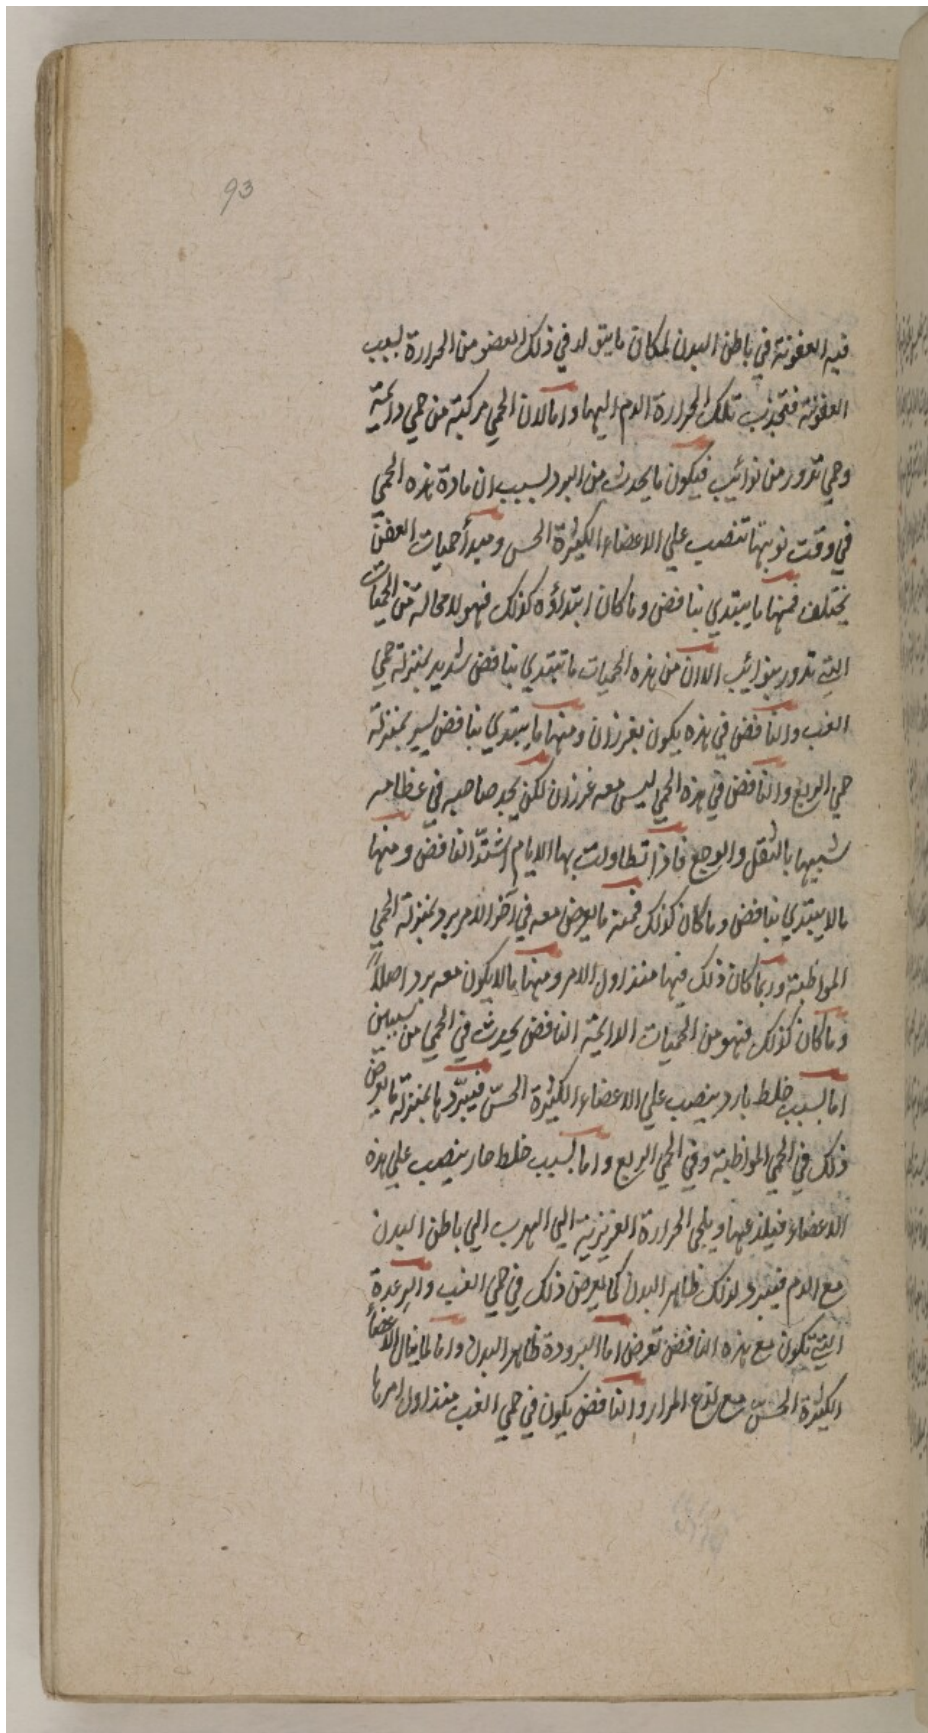 93
فيه العفونة في باطن البدن لمكان ما يتولد في ذلك العضو من الحرارة لسبب
العفونة فتجذب تلك الحرارة الدم اليها واما لان الحمى مركبة من حمي دائمة
وحمي تدور من نوائيب فيكون ما يحدث من البرد لسبب ان مادة هذه الحمي
في وقت نوبتها تنصب علي الاعضاء الكثيرة الحس ومبدأ حميات العفن
يختلف فمنها ما يبتدي بنافض وما كان ابتداؤه كذلك فهو لا محالة من الحميات
التي تدور بنوائيب الا ان من هذه الحميات ما تبتدي بنافض شديد بمنزلة حمي
الغب والنافض في هذه يكون بغرزان ومنها ما يبتدي بنافض يسير بمنزلة
حمي الربع والنافض في هذه الحمي ليس معه غرزان لكن يجد صاحبه في عظامه
شبيها بالثقل والوجع فاذا تطاولت بها الايام اشتدّ النافض ومنها
ما لا يبتدي بنافض وما كان كذلك فمنه ما يعرض معه في آخر الامر برد بمنزلة الحمي
المواظبة وربما كان ذلك فيها منذ اول الامر ومنها ما لا يكون معه برد اصلاً
وما كان كذلك فهو من الحميات الدائمة النافض يحدث في الحمي من سببين
اما لسبب خلط بارد ينصب علي الاعضاء الكثيرة الحسّ فيبرّدها بمنزلة ما يعرض
ذلك في الحمي المواظبة وفي الحمي الربع واما لسبب خلط حار ينصب علي هذه
الاعضاء فيلذعها ويلجي الحرارة الغريزية الي الهرب الي باطن البدن
مع الدم فيبرد لذلك ظاهر البدن كما يعرض ذلك في حمي الغب والرعدة
التي تكون مع هذه النافض تعرض اما لبرودة ظاهر البدن واما لما ينال الاعضاء
الكثيرة الحسّ مع لذع المرار والنافض يكون في حمي الغب منذ اول امرها